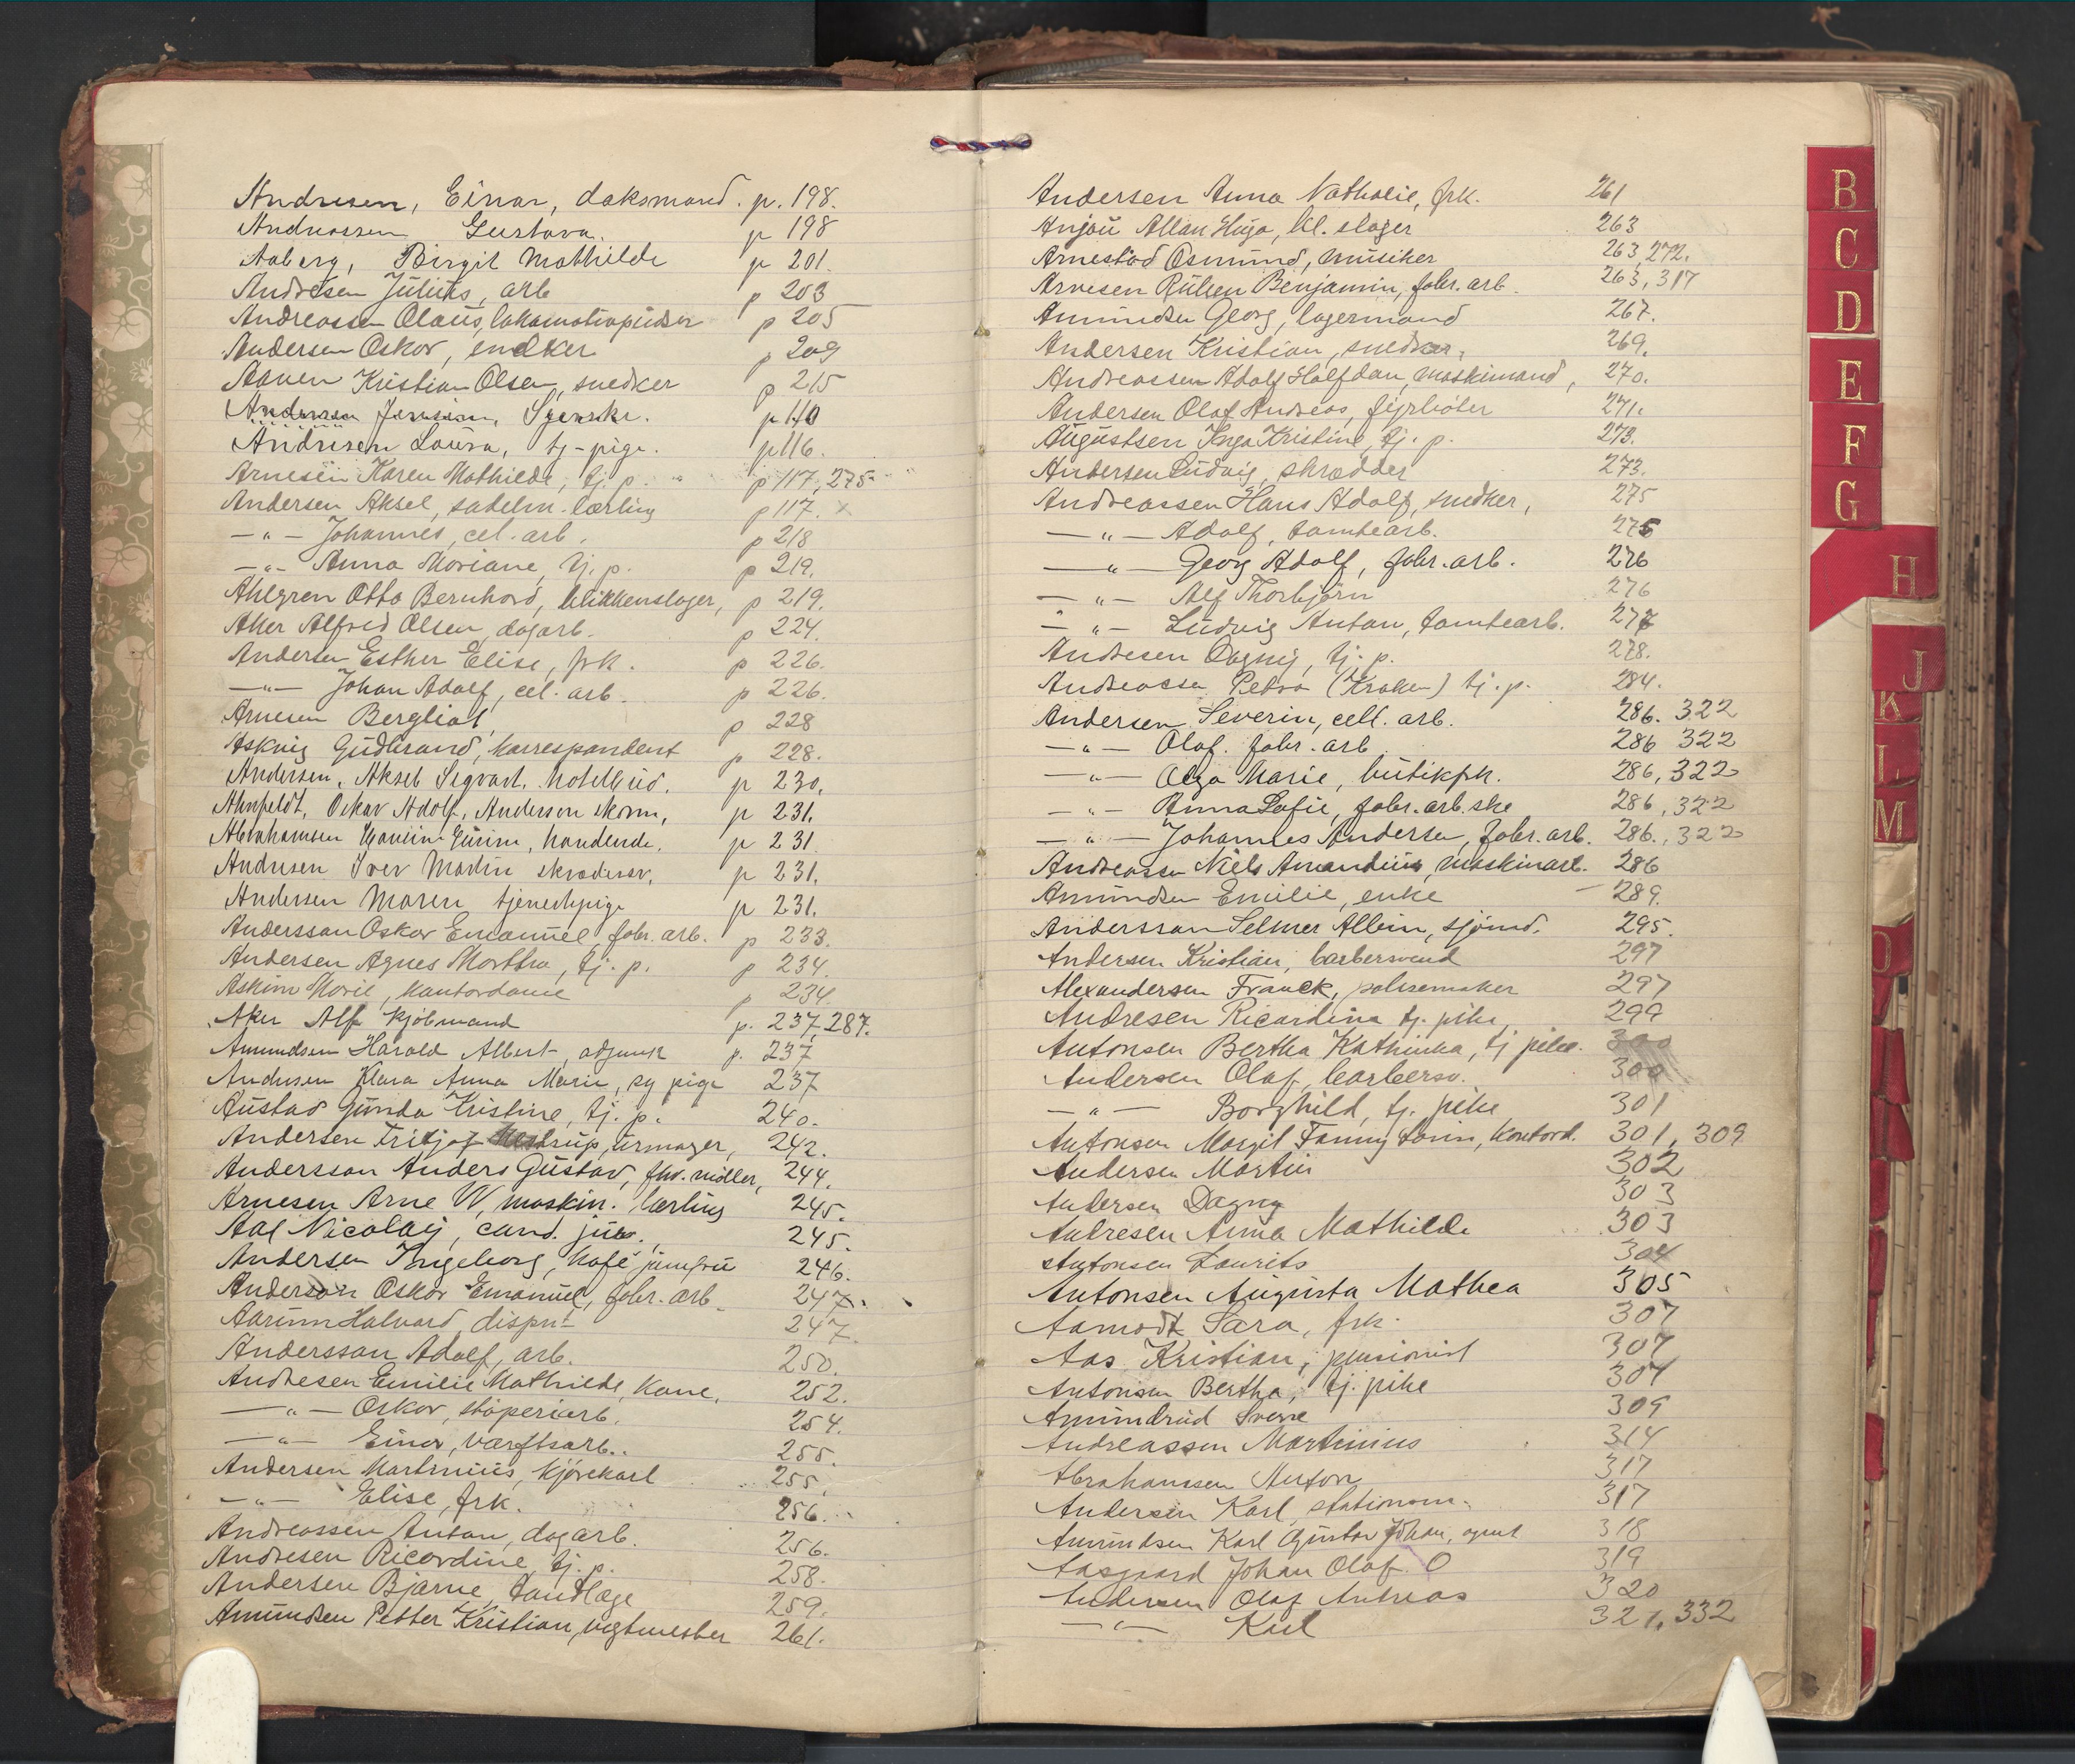 Andresen, Einar, daksmand. p. 198.
Andreassen Gustava. p 198
Aaberg, Birgit Mathilde p 201.
Andresen Julius, arb p 203
Andreassen Olaus, lokomotivpudser p 205
Andersen Oskar, snekker p 209
Aanen Kristian Olsen, snedker p 215
Andersen Svenske. p 110
Andresen Laura, tj-pige. p 116.
Arnesen Karen Mathilde, tj. p. p 117, 275
Andersen Aksel, sadelm. lærling p 117. x
—"— Johannes, cel. arb. p 218
—"— Anna Mariane, tj. p. p 219.
Ahlgren Otto Bernhard, blikkenslager, p 219.
Aker Alfred Olsen, dagarb. p 224.
Andersen Esther Elise, frk. p 226.
—"— Johan Adolf, cel. arb. p 226.
Arnesen Bergliot, p 228
Askvig Gudbrand, korrespondent p 228.
Andersen, Aksel Sigvart. hotelbud. p 230.
Ahnfeldt, Oskar Adolf, Anderson skom, p 231.
Abrahamsen handlende. p 231
Andresen Iver Madin skrædersv. p 231.
Andersen Maren tjenestepige p 231.
Andersson Oskar Emanuel, fabr. arb. p 233.
Andersen Agnes Martha, tj. p. p 234.
Askim Marie, kontordame p 234.
Aker Alf kjøbmand p. 237, 287.
Amundsen Harald Albert, adjunkt p. 237
Andresen Klara Anna Marie, sy pige 237
Austad Gunda Kristine, tj. p. 240.
Andersen Fritjof urmager, 242.
Andersson Anders Gustav, fhv. møller, 244.
Arnesen Arne W, maskin. lærling 245.
Aal Nicolay, cand. jur. 245.
Andersen Ingeborg, kafé jomfru 246.
Anderson Oskar Emanuel, fabr. arb 247.
Aarum Halvard, dispn- 247.
Andersson Adolf, arb. 250.
Andresen Emilie Mathilde, Kone. 252.
—"— Oskar, støperiarb. 254.
—"— Einar, værftsarb. 255.
Andersen Martinius, kjørekarl 255.
—"— Elise, frk. 256.
Andreassen Anton, dagarb. 256.
Andresen Ricardine, tj. p. 258.
Andersen Bjarne, Tandlæge 259.
Amundsen Petter Kristian, vegtmester 261.
Andersen Anna Nathalie, frk. 261
Anjou Allan Hugo, bl. slager 263
Arnestad Osmund, musiker 263, 272.
Arnesen Ruben Benjamin, fabr. arb. 263, 317
Amundsen Georg, lagermand 267.
Andersen Kristian, snedker, 269.
Andreassen Adolf Halfdan, maskinmand, 270.
Andersen Olaf Andreas, fyrbøter 271.
Augustsen Inga Kristine, tj. p. 273.
Andersen Ludvig, skrædder 273.
Andreassen Hans Adolf, snedker, 275
—"— Adolf, tomtearb. 275
—"— Georg Adolf, fabr. arb. 276
—"— Alf Thorbjørn 276
—"— Ludvig Anton, tomtearb. 277
Andresen Dagny, tj. p. 278.
Andreassen Petra (Kroken) tj. p. 284.
Andersen Severin, cell. arb. 286. 322
—"— Olaf. fabr. arb 286 322
—"— Olga Marie, butikfrk. 286, 322
—"— Anna Sofie, fabr. arb. ske 286, 322
—"— Johannes Andersen, fabr. arb. 286., 322
Andreassen Niels Amandius, maskinarb. 286
Amundsen Emilie, enke 289.
Andersson Selmer Albin, sjømd. 295.
Andersen Kristian, barbersvend 297
Alexandersen Franck, pølsemaker 297
Andresen Ricardina tj. pike 299
Antonsen Bertha Kathinka, tj pike. 300
Andersen Olaf, barbersv. 300
—"— Borghild, tj. pike 301
Antonsen Margit Fanny Karin, kontord. 301, 309
Andersen Martin 302
Andersen Dagny 303
Andresen Anna Mathilde 303
Antonsen Laurits 304
Antonsen Augusta Mathea 305
Aamodt Sara, frk. 307
Aas Kristian, pensionist 307
Antonsen Bertha, tj. pike 307
Amundrud Sverre 309
Andreassen Martinius 314
Abrahamsen Anton 317
Andersen Karl, stationsm. 317
Amundsen Karl Gustav Johan, agent 318
Aasgaard Johan Olaf. O 319
Andersen Olaf Andreas 320
—"— Karl 321, 332
B
C
D
E
F
G
H
J
K
L
M
O